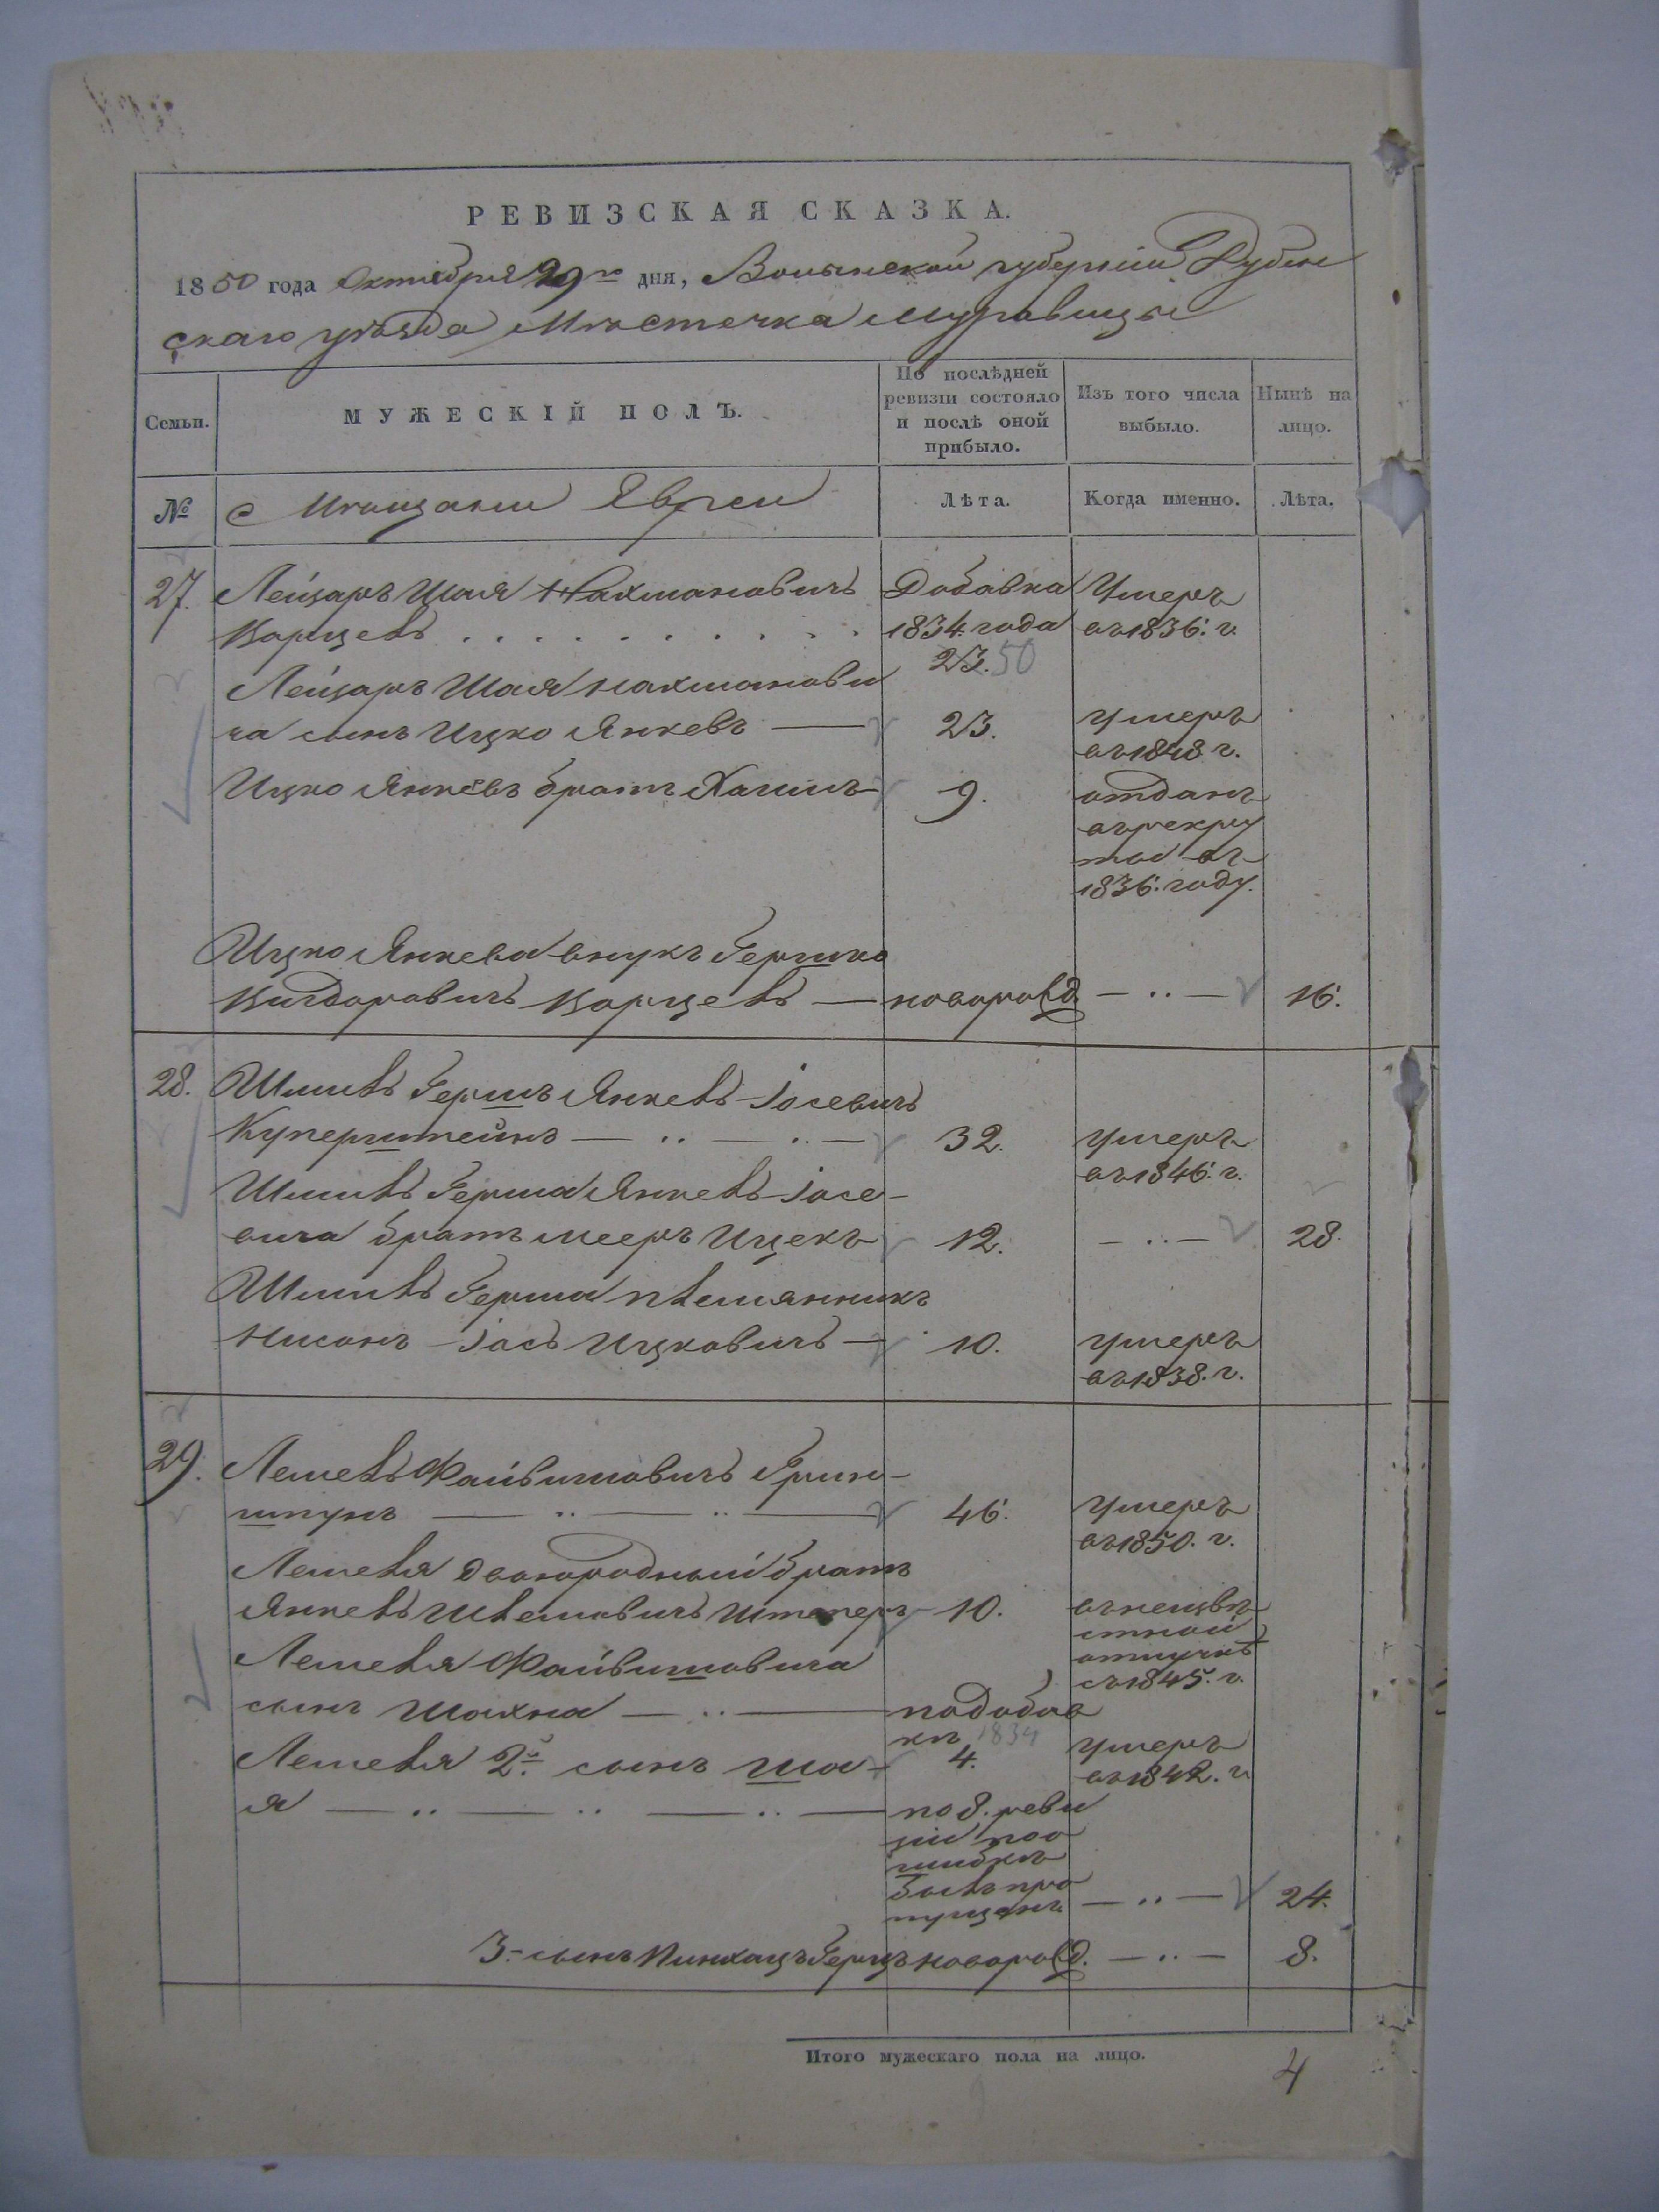 РЕВИЗСКАЯ СКАЗКА.
1850 года Октября 29го дня, Волынской губернии Дубен
скаго уѣзда Мѣстечка Муравицы
Семьи.
МУЖЕСКІЙ ПОЛЪ.
По послѣдней
ревизіи состояло
и послѣ оной
прибыло.
Изъ того числа
выбыло.
Нынѣ на
лицо.
№
Мѣщане Евреи
Лѣта.
Когда именно.
Лѣта.
27. Лейзаръ Шая Нахмановичь Добавка Умеръ
Корцевъ . . . . . . . . . . 1834. года въ 1836. г.
23. 50
Лейзаръ Шая Нахманови
ча сынъ Ицко Янкевъ — 23. умеръ
въ 1848 г.
Ицко Янкевъ братъ Хаимъ 9. отданъ
въ рекру
ты въ
1836. году.
Ицко Янкева внукъ Гершко
Вигдоровичь Корцевъ — новорожд — .. — 16.
28. Шмиль Гершъ Янкель Іосевичь
Куперштейнъ — .. — .. — 32. умеръ
въ 1846. г.
Шмиль Герша Янкель Іосе-
вича братъ Мееръ Ицекъ 12. — .. — 28.
Шмиль Герша племянникъ
Нисонъ Іось Ицковичь — 10. умеръ
въ 1838. г.
29. Лейбель Файвишовичь Грин-
шпунъ — .. — .. — 46. умеръ
въ 1850. г.
двоюродный братъ
Янкель 10. въ неизвѣ
стной
отлучкѣ
съ 1845. г.
Файвишовича
сынъ Шахна — .. — по добав
кѣ 1834
4. умеръ
въ 1842. г.
2й. сынъ Ша-
я — .. — .. — .. — по 8. реви
зіи по о
шибкѣ
былъ про
пущенъ — .. — 24.
3.- сынъ Пинхацъ Герцъ новорожд. — .. — 8.
Итого мужескаго пола на лицо.
4